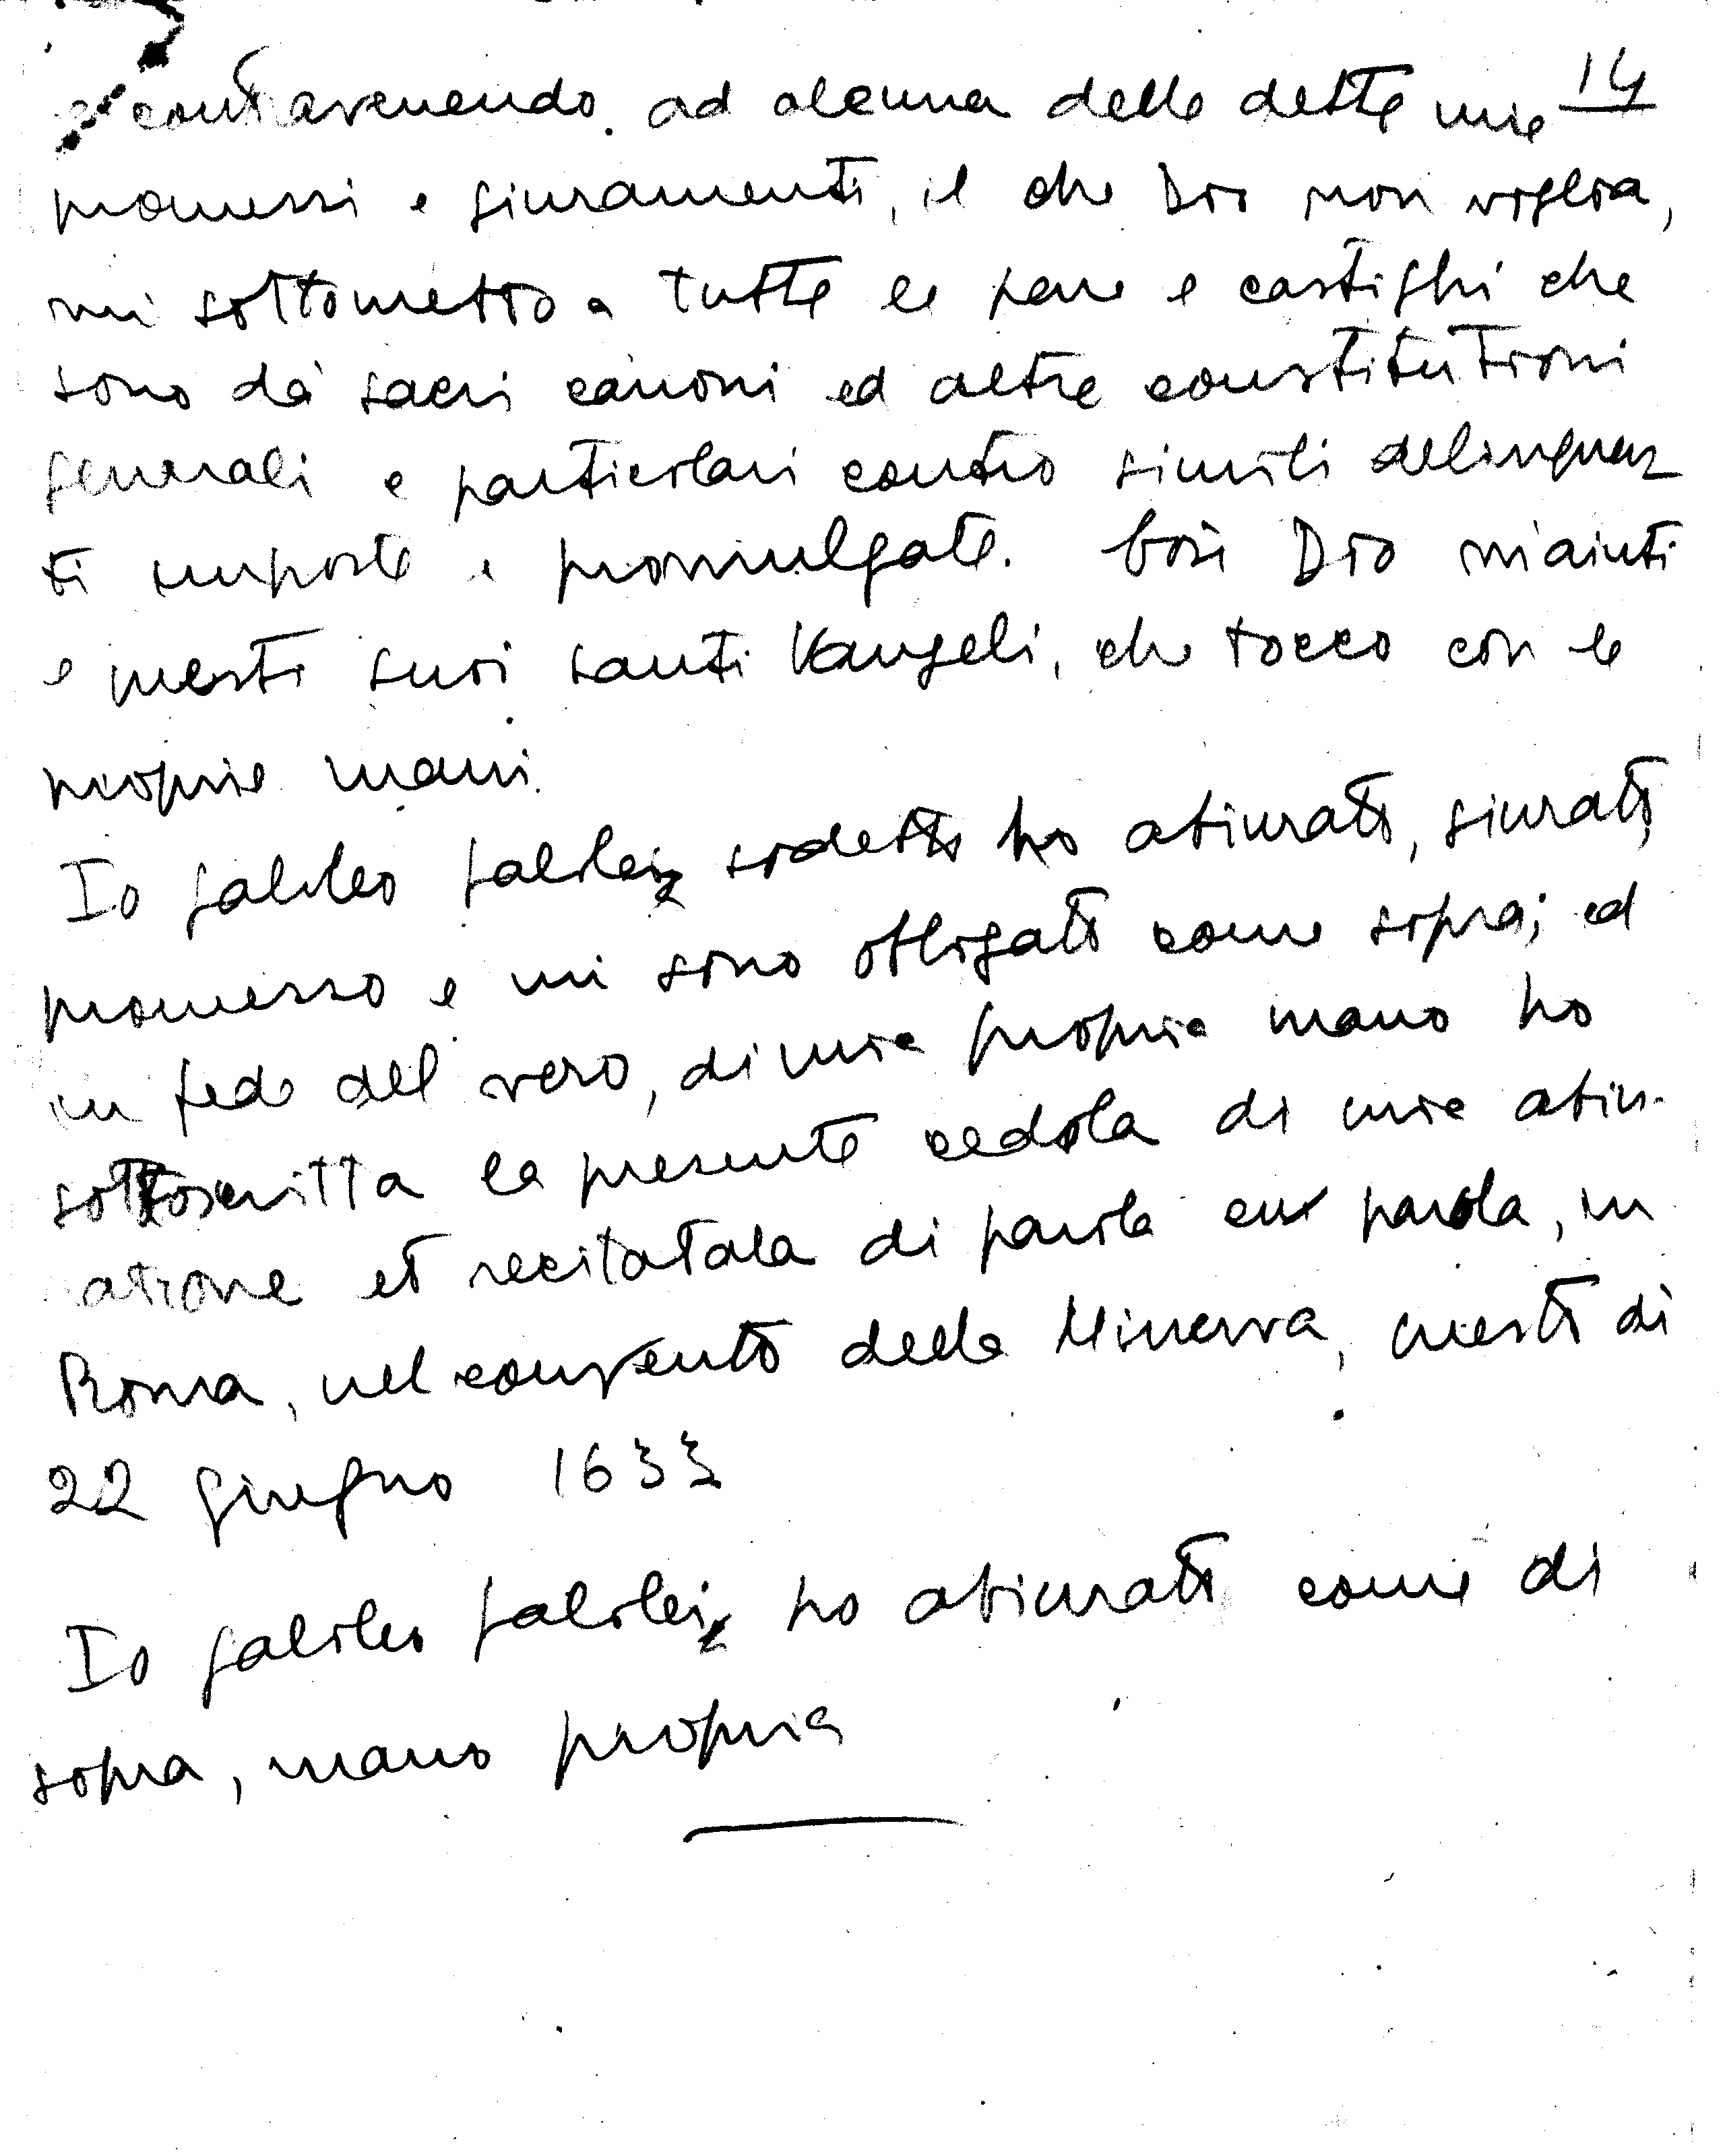 contravenendo ad alcuna delle dette mie 14
promessi e giuramenti, il che Dio non voglia,
mi sottometto a tutte le pene e castighi che
sono da' sacri canoni ed altre constitutioni
generali e particolari contro simili delinquen
ti imposte e promulgate. Così Dio m'aiuti
e questi suoi santi Vangeli, che tocco con le
proprie mani.
Io Galileo Galilei sodetto ho abiurato, giurato,
promesso e mi sono obligato come sopra; ed
in fede del vero, di mia propria mano ho
sottoscritta la presente cedola di mia abiu-
ratione et recitatala di parola in parola, in
Roma, nel convento della Minerva, questo dì
22 giugno 1633
Io Galileo Galilei ho abiurato come di
sopra, mano propria